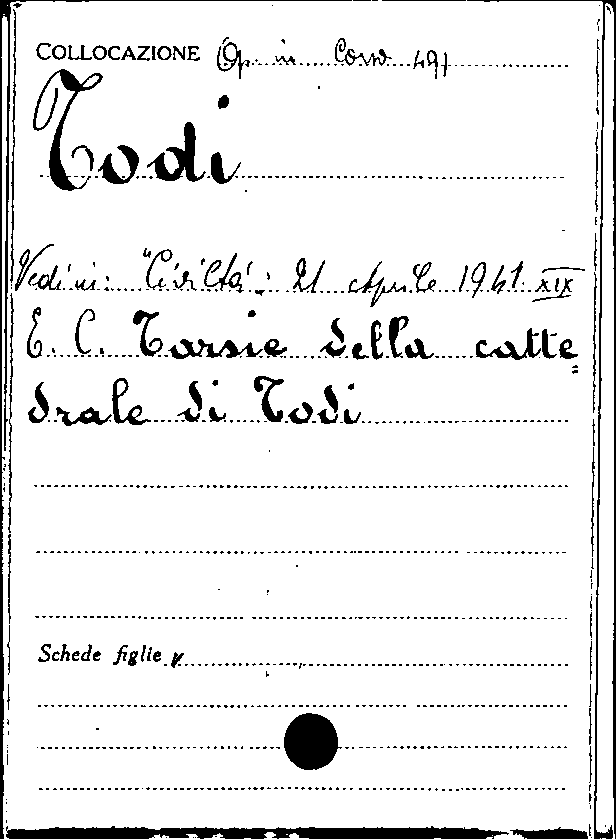 COLLOCAZIONE Op. in Cons. 491
Todi
Vedi in: "Civiltà": 21 Aprile 1941 XIX
E. C. Tarsie della catte=
drale di Todi
Schede figlie